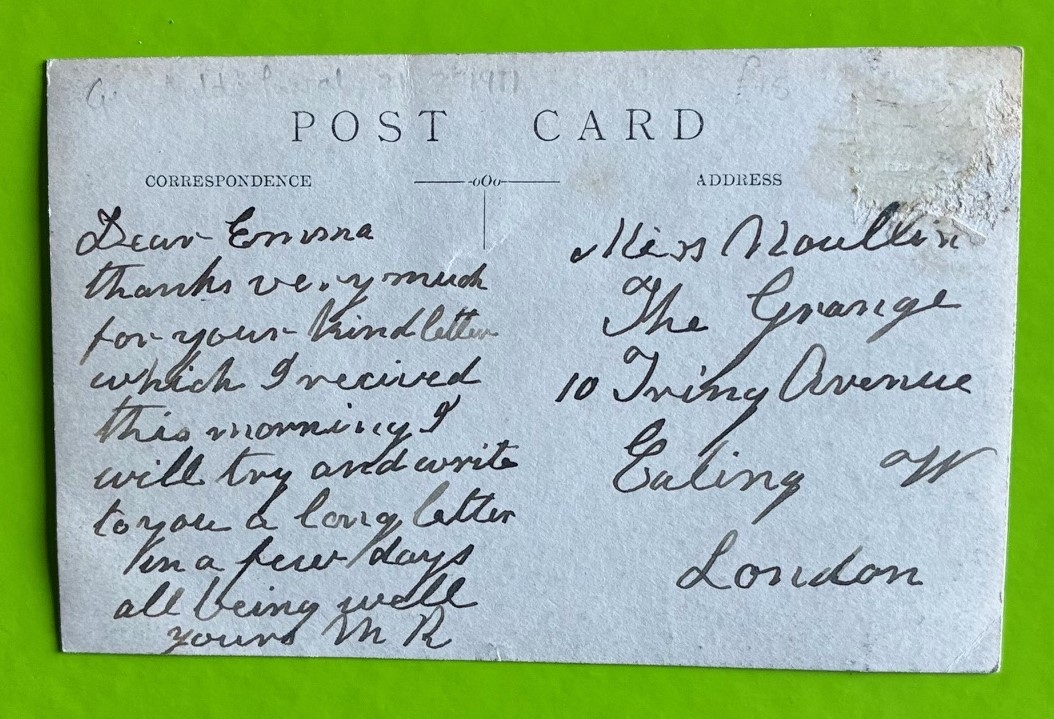 POST CARD
CORRESPONDENCE
ADDRESS
Dear Emma
thanks very much
for your kind letter
which I recived
this morning I
will try and write
to you a long letter
in a few days
all being well
yours M R
Miss Noullin
The Grange
10 Irving Avenue
Ealing W
London